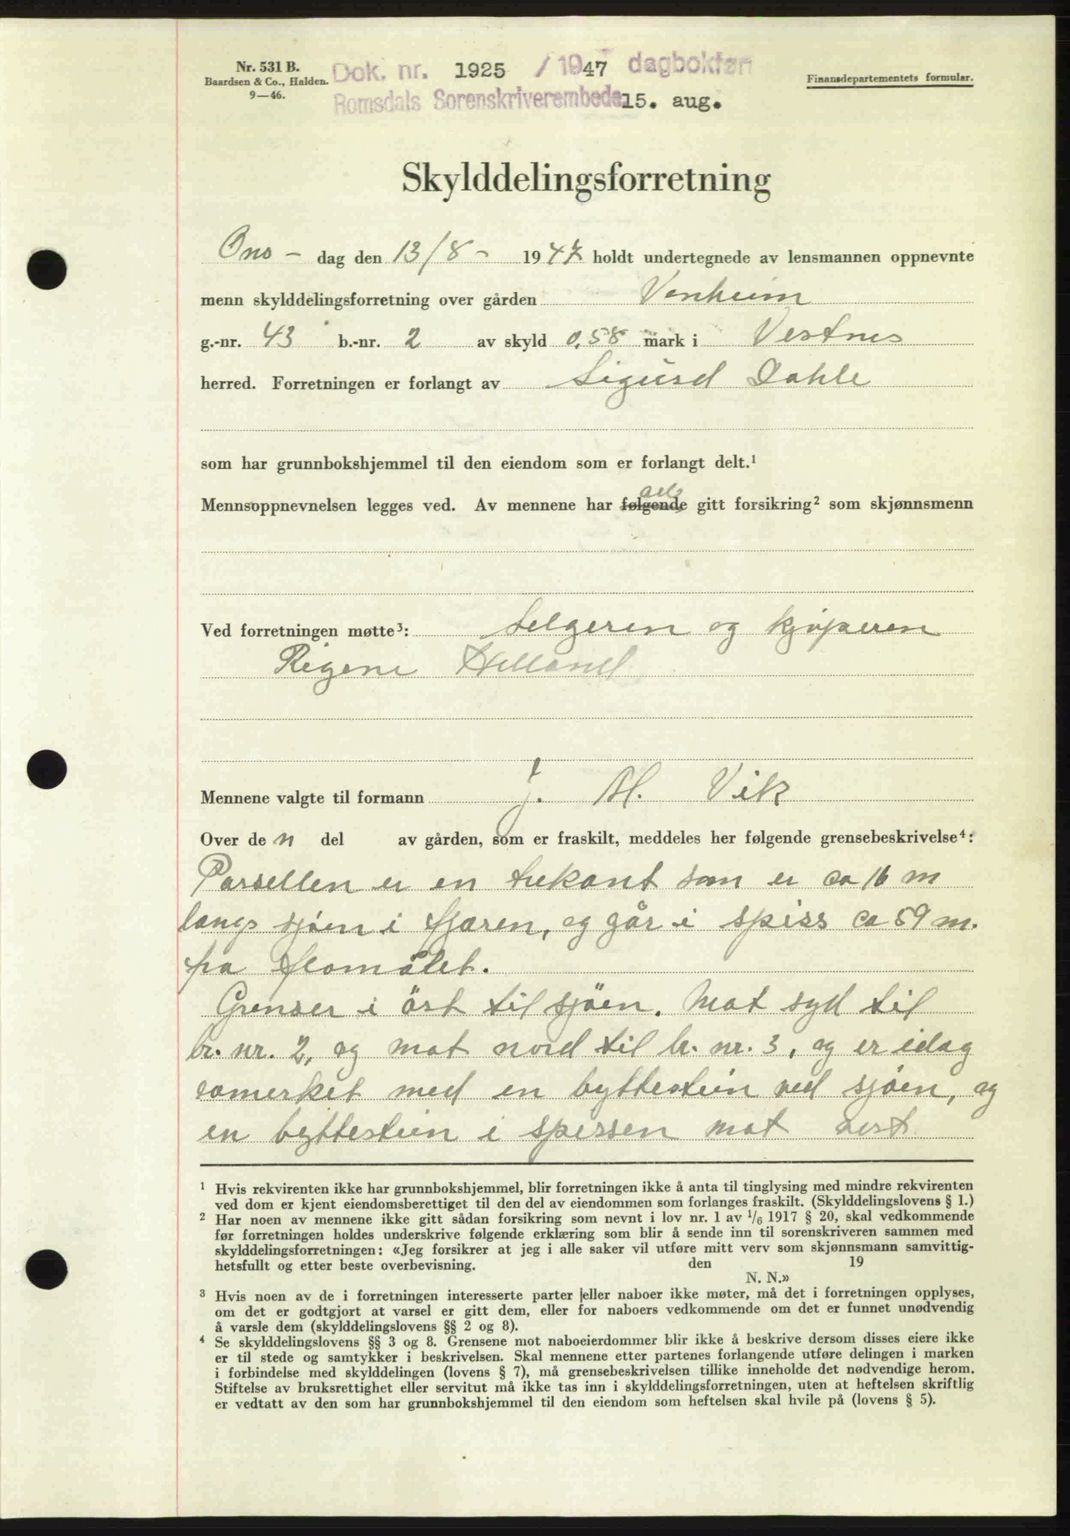 Nr. 531 B.
Baardsen & Co., Halden.
9—46.
Dok. nr. 1925 / 1947 dagbokføn
Romsdals Sorenskriverembede 15. aug.
Finansdepartementets formular.
Skylddelingsforretning
Ons- dag den 13/8- 1947 holdt undertegnede av lensmannen oppnevnte
menn skylddelingsforretning over gården Vonheim
g.-nr. 43 b.-nr. 2 av skyld 0,58 mark i Vestnes
herred. Forretningen er forlangt av Sigurd Dahle
som har grunnbokshjemmel til den eiendom som er forlangt delt.¹
Mennsoppnevnelsen legges ved. Av mennene har følgende alle gitt forsikring² som skjønnsmenn
Ved forretningen møtte³: Selgeren og kjøperen
Helland
Mennene valgte til formann J. M. Vik
Over de n del av gården, som er fraskilt, meddeles her følgende grensebeskrivelse⁴:
Parsellen er en trekant som er ca 16 m
langs sjøen i fjæren, og går i spiss ca 59 m.
fra flomålet.
Grenser i öst til sjöen. Mot syd til
br. nr. 2, og mot nord til br. nr. 3, og er idag
med en byttestein ved sjöen, og
en byttestein i spissen mot vest
¹ Hvis rekvirenten ikke har grunnbokshjemmel, blir forretningen ikke å anta til tinglysing med mindre rekvirenten
ved dom er kjent eiendomsberettiget til den del av eiendommen som forlanges fraskilt. (Skylddelingslovens § 1.)
² Har noen av mennene ikke gitt sådan forsikring som nevnt i lov nr. 1 av 1/6 1917 § 20, skal vedkommende
før forretningen holdes underskrive følgende erklæring som blir å sende inn til sorenskriveren sammen med
skylddelingsforretningen: «Jeg forsikrer at jeg i alle saker vil utføre mitt verv som skjønnsmann samvittig-
hetsfullt og etter beste overbevisning. den 19
N. N.»
³ Hvis noen av de i forretningen interesserte parter eller naboer ikke møter, må det i forretningen opplyses,
om det er godtgjort at varsel er gitt dem, eller for naboers vedkommende om det er funnet unødvendig
å varsle dem (skylddelingslovens §§ 2 og 8).
⁴ Se skylddelingslovens §§ 3 og 8. Grensene mot naboeierdommer blir ikke å beskrive dersom disses eiere ikke
er til stede og samtykker i beskrivelsen. Skal mennene etter partenes forlangende utføre delingen i marken
i forbindelse med skylddelingen (lovens § 7), må grensebeskrivelsen tillike inneholde det nødvendige herom.
Stiftelse av bruksrettighet eller servitut må ikke tas inn i skylddelingsforretningen, uten at heftelsen skriftlig
er vedtatt av den som har grunnbokshjemmel til den eiendom som heftelsen skal hvile på (lovens § 5).